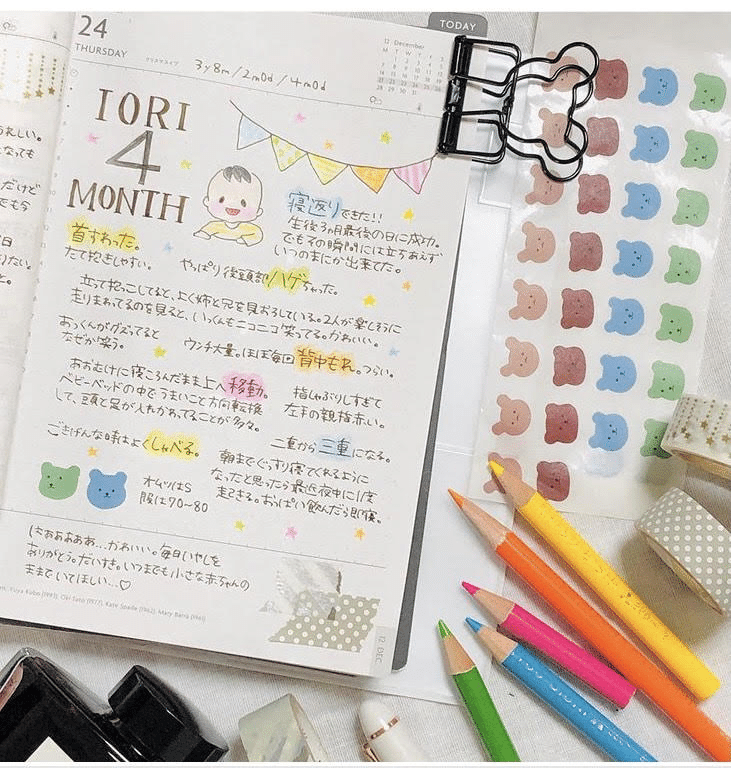 TODAY
24
THURSDAY
クリスマスイブ
12 December
3y8m/2m0d/4m0d
IORI
4
MONTH
寝返りできた!!
生後3ヵ月最後の日に成功。
でもその瞬間には立ちあえず
いつのまにか出来てた。
首すわった。
たて抱きしやすい。
やっぱり後頭部ハゲちゃった。
立って抱っこしてると、よく姉と兄を見おろしている。2人が楽しそうに
走りまわってるのを見ると、いっくんもニコニコ笑ってる。かわいい。
あっくんがグズってると
なぜか笑う。
ウンチ大量。ほぼ毎回背中もれ。つらい。
あおむけに寝ころんだまま上へ移動。
ベビーベッドの中でうまいこと方向転換
して、頭と足が入れかわってることが多々。
指しゃぶりしすぎて
左手の親指赤い。
ごきげんな時はよくしゃべる。
二重から三重になる。
オムツはS
服は70~80
朝までぐっすり寝てくれるように
なったと思ったら最近夜中に1度
起きる。おっぱい飲んだら即寝。
はぁぁぁぁぁ…かわいい。毎日いやしを
ありがとう。だいすき。いつまでも小さな赤ちゃんの
ままでいてほしい…♡
Yuya Kubo (1993), Oki Sato (1977), Kate Spade (1962), Mary Barra (1961)
12 DEC
うれしい。
なっても
だけど
でも今